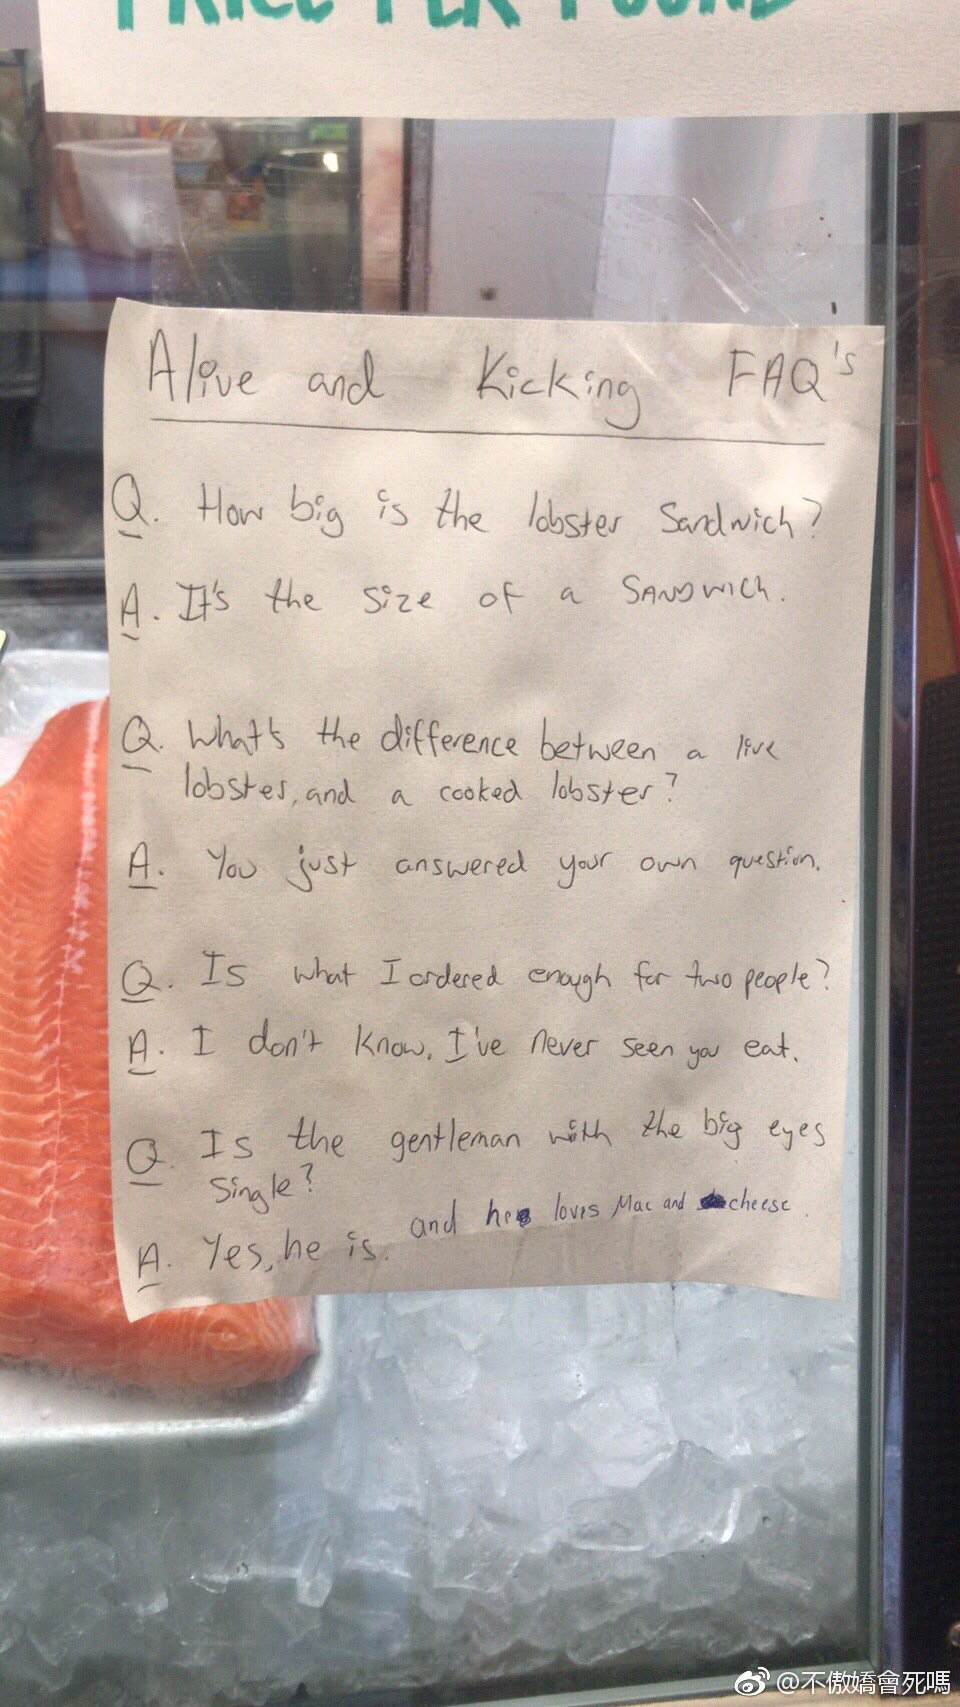 PRICE PER POUND
Alive and Kicking FAQ's
Q. How big is the lobster Sandwich?
A. It's the size of a SANDWICH.
Q. What's the difference between a live
lobster, and a cooked lobster?
A. You just answered your own question.
Q. Is what I ordered enough for two people?
A. I don't know, I've never seen you eat.
Q. Is the gentleman with the big eyes
Single?
A. Yes, he is. and he loves Mac and cheese.
@不傲嬌會死嗎